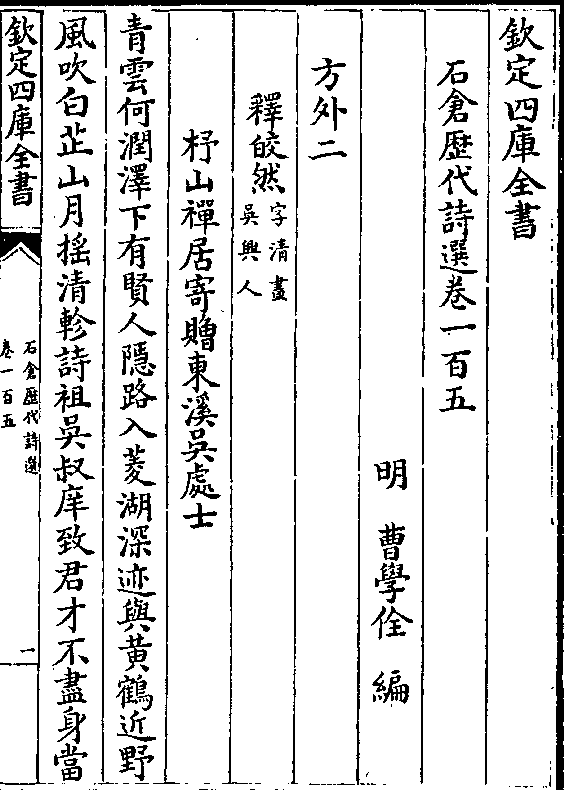 欽定四庫全書
石倉歴代詩選卷一百五
明　曹學佺　編
方外二
釋皎然字清晝吳興人
杼山禪居寄贈東溪吳處士
青雲何潤澤下有賢人隱路入菱湖深迹與黄鶴近野
風吹白芷山月揺清軫詩祖吳叔庠致君才不盡身當
欽定四庫全書
石倉歴代詩選
卷一百五
一